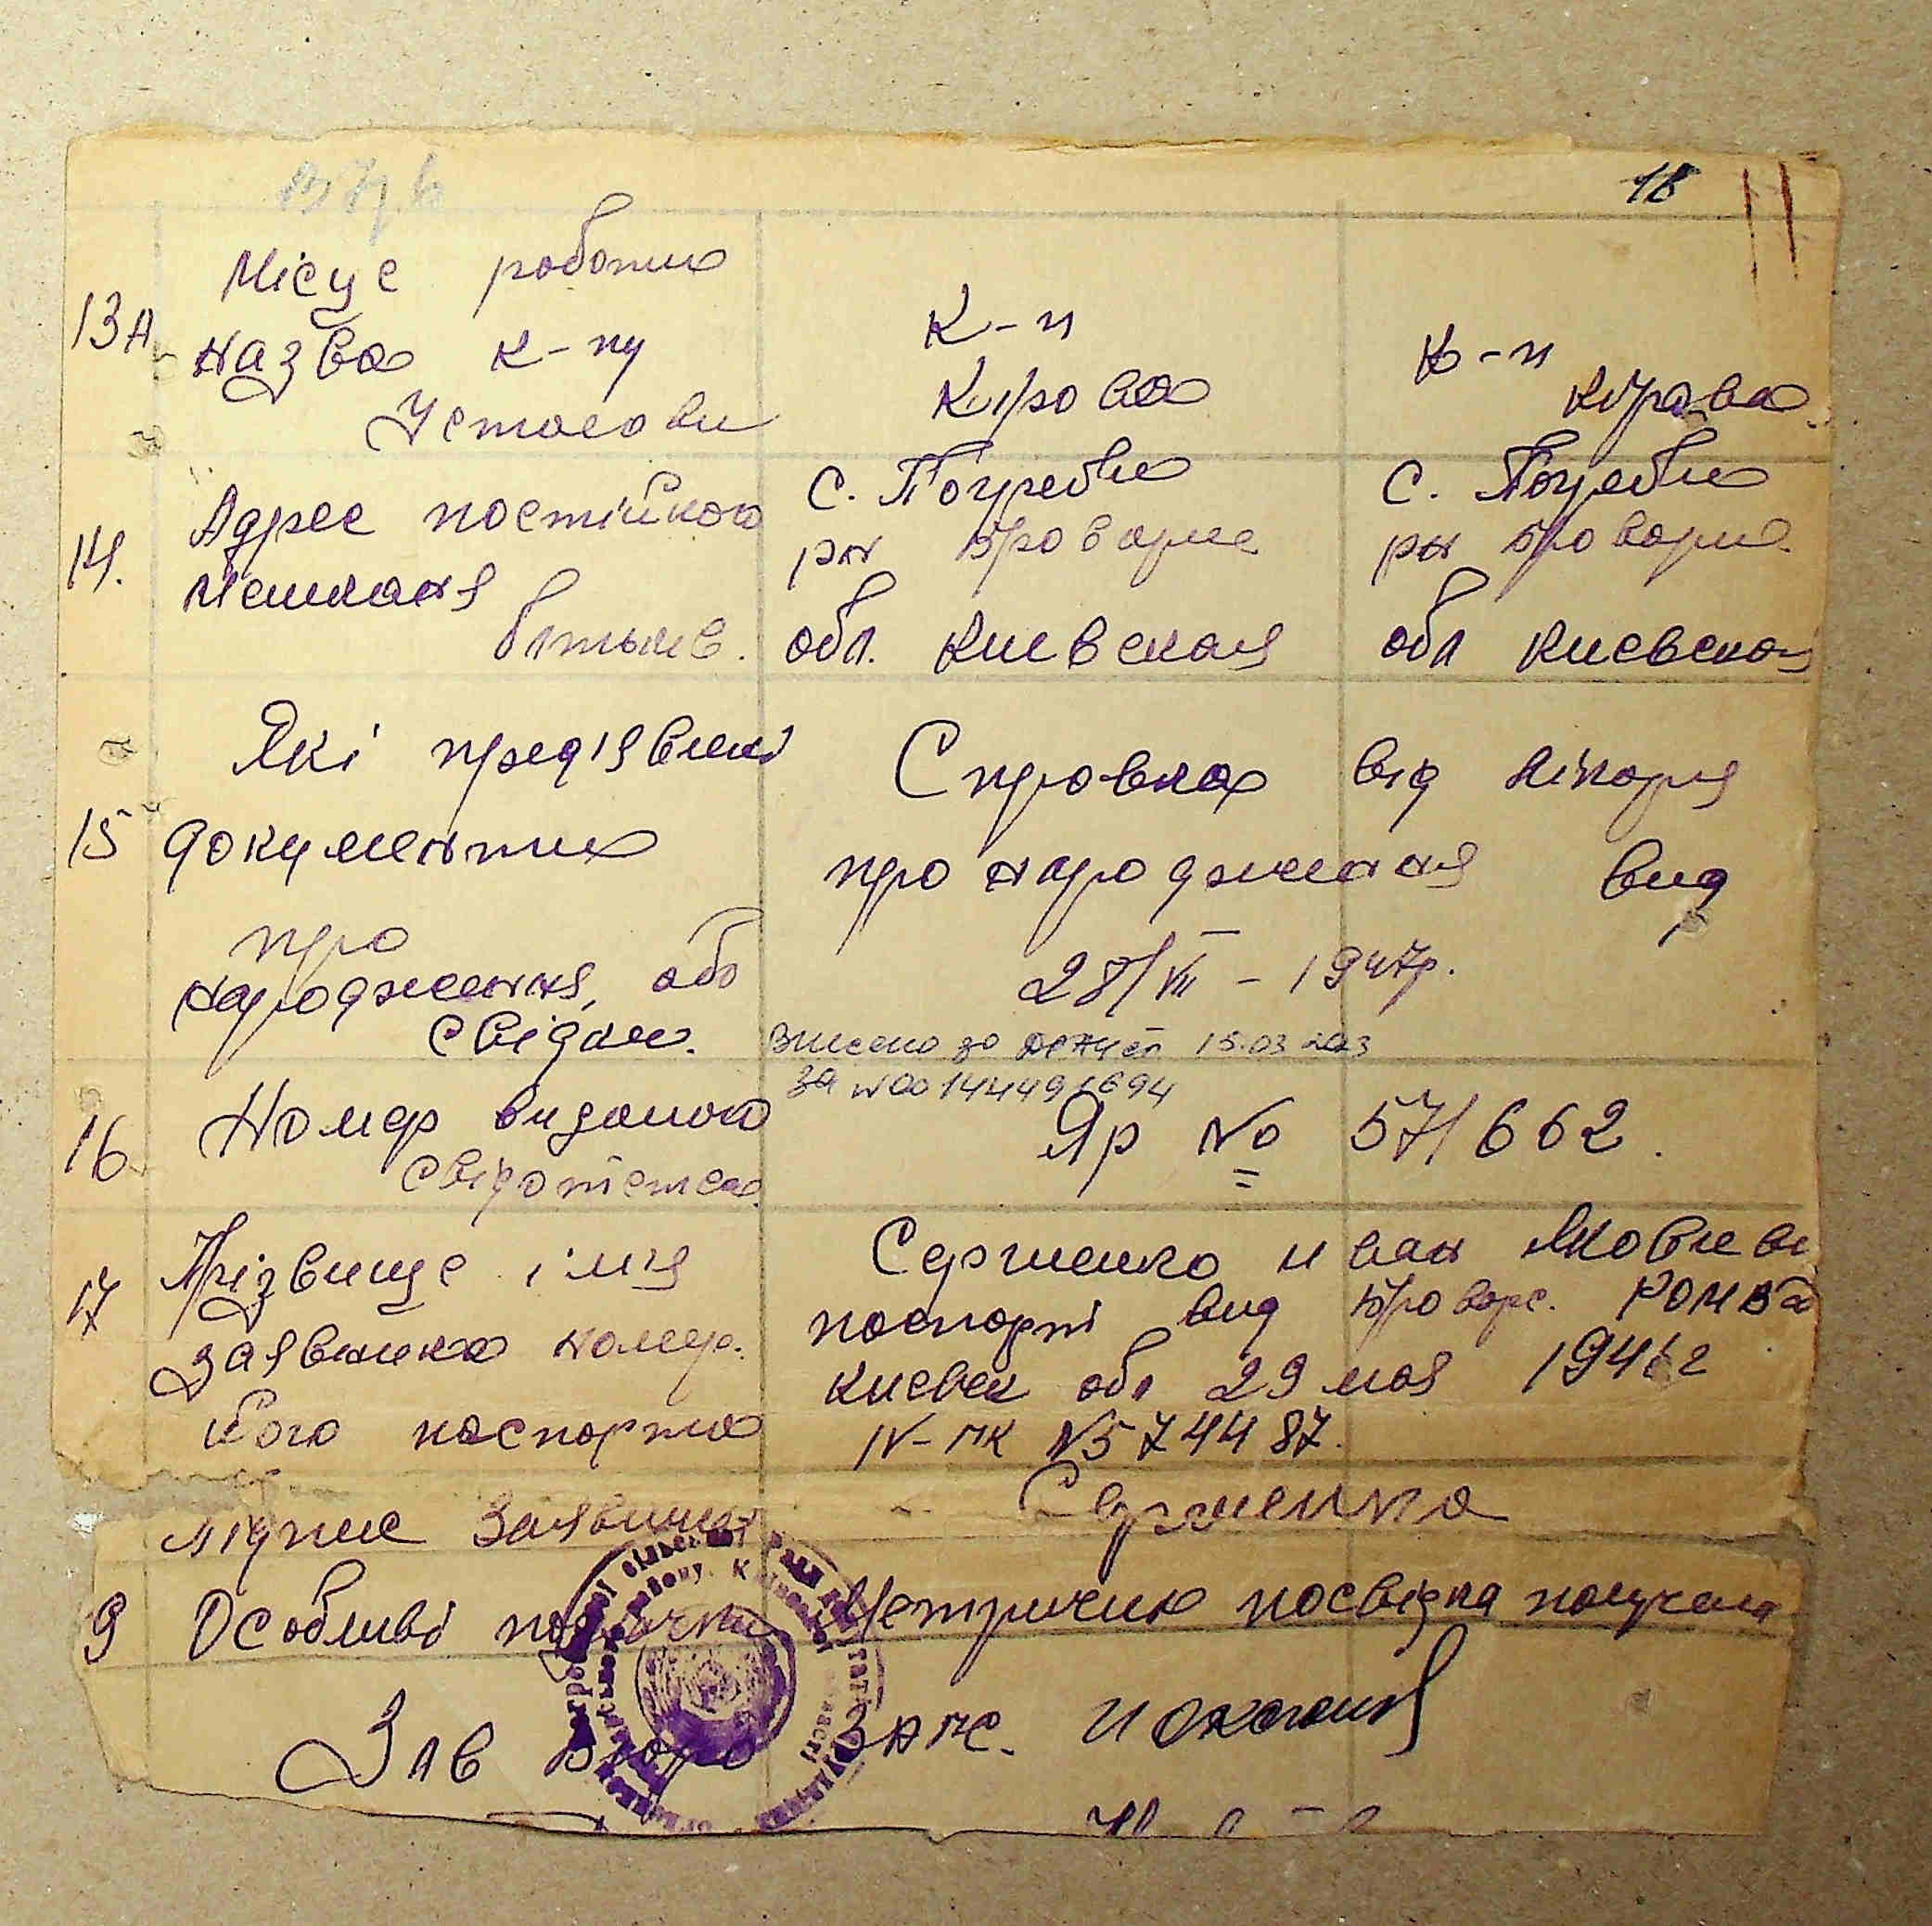 18
13А Місце роботи
назва к-пу
Установи
К-п
Кірова
к-п
Кірова
14. Адрес постійного
мешканя
батьків.
с. Погреби
рн Броварис
обл. Киевская
с. Погреби
рн Броварис
обл Киевская
15 Які предявлені
документи
про
народження, або
свідки.
Справка від лікаря
про народження вид
28/VII - 1947р.
Внесено до ДРАЦСГ 15.03 2023
за №00144491694
16 Номер виданого
свідотства
Яр № 571662.
17 Прізвище імя
заявника номер.
його паспорта
Сергиенко иван Яковлеви
паспорт вид Броварс. РОМВД
киевск обл 29 мая 1941г
IV-ПК №574487.
підпис Заявника
Сергиенко
9 Особливі помітки
Метричня посвідка получена
Зав Бюро ЗАГС.